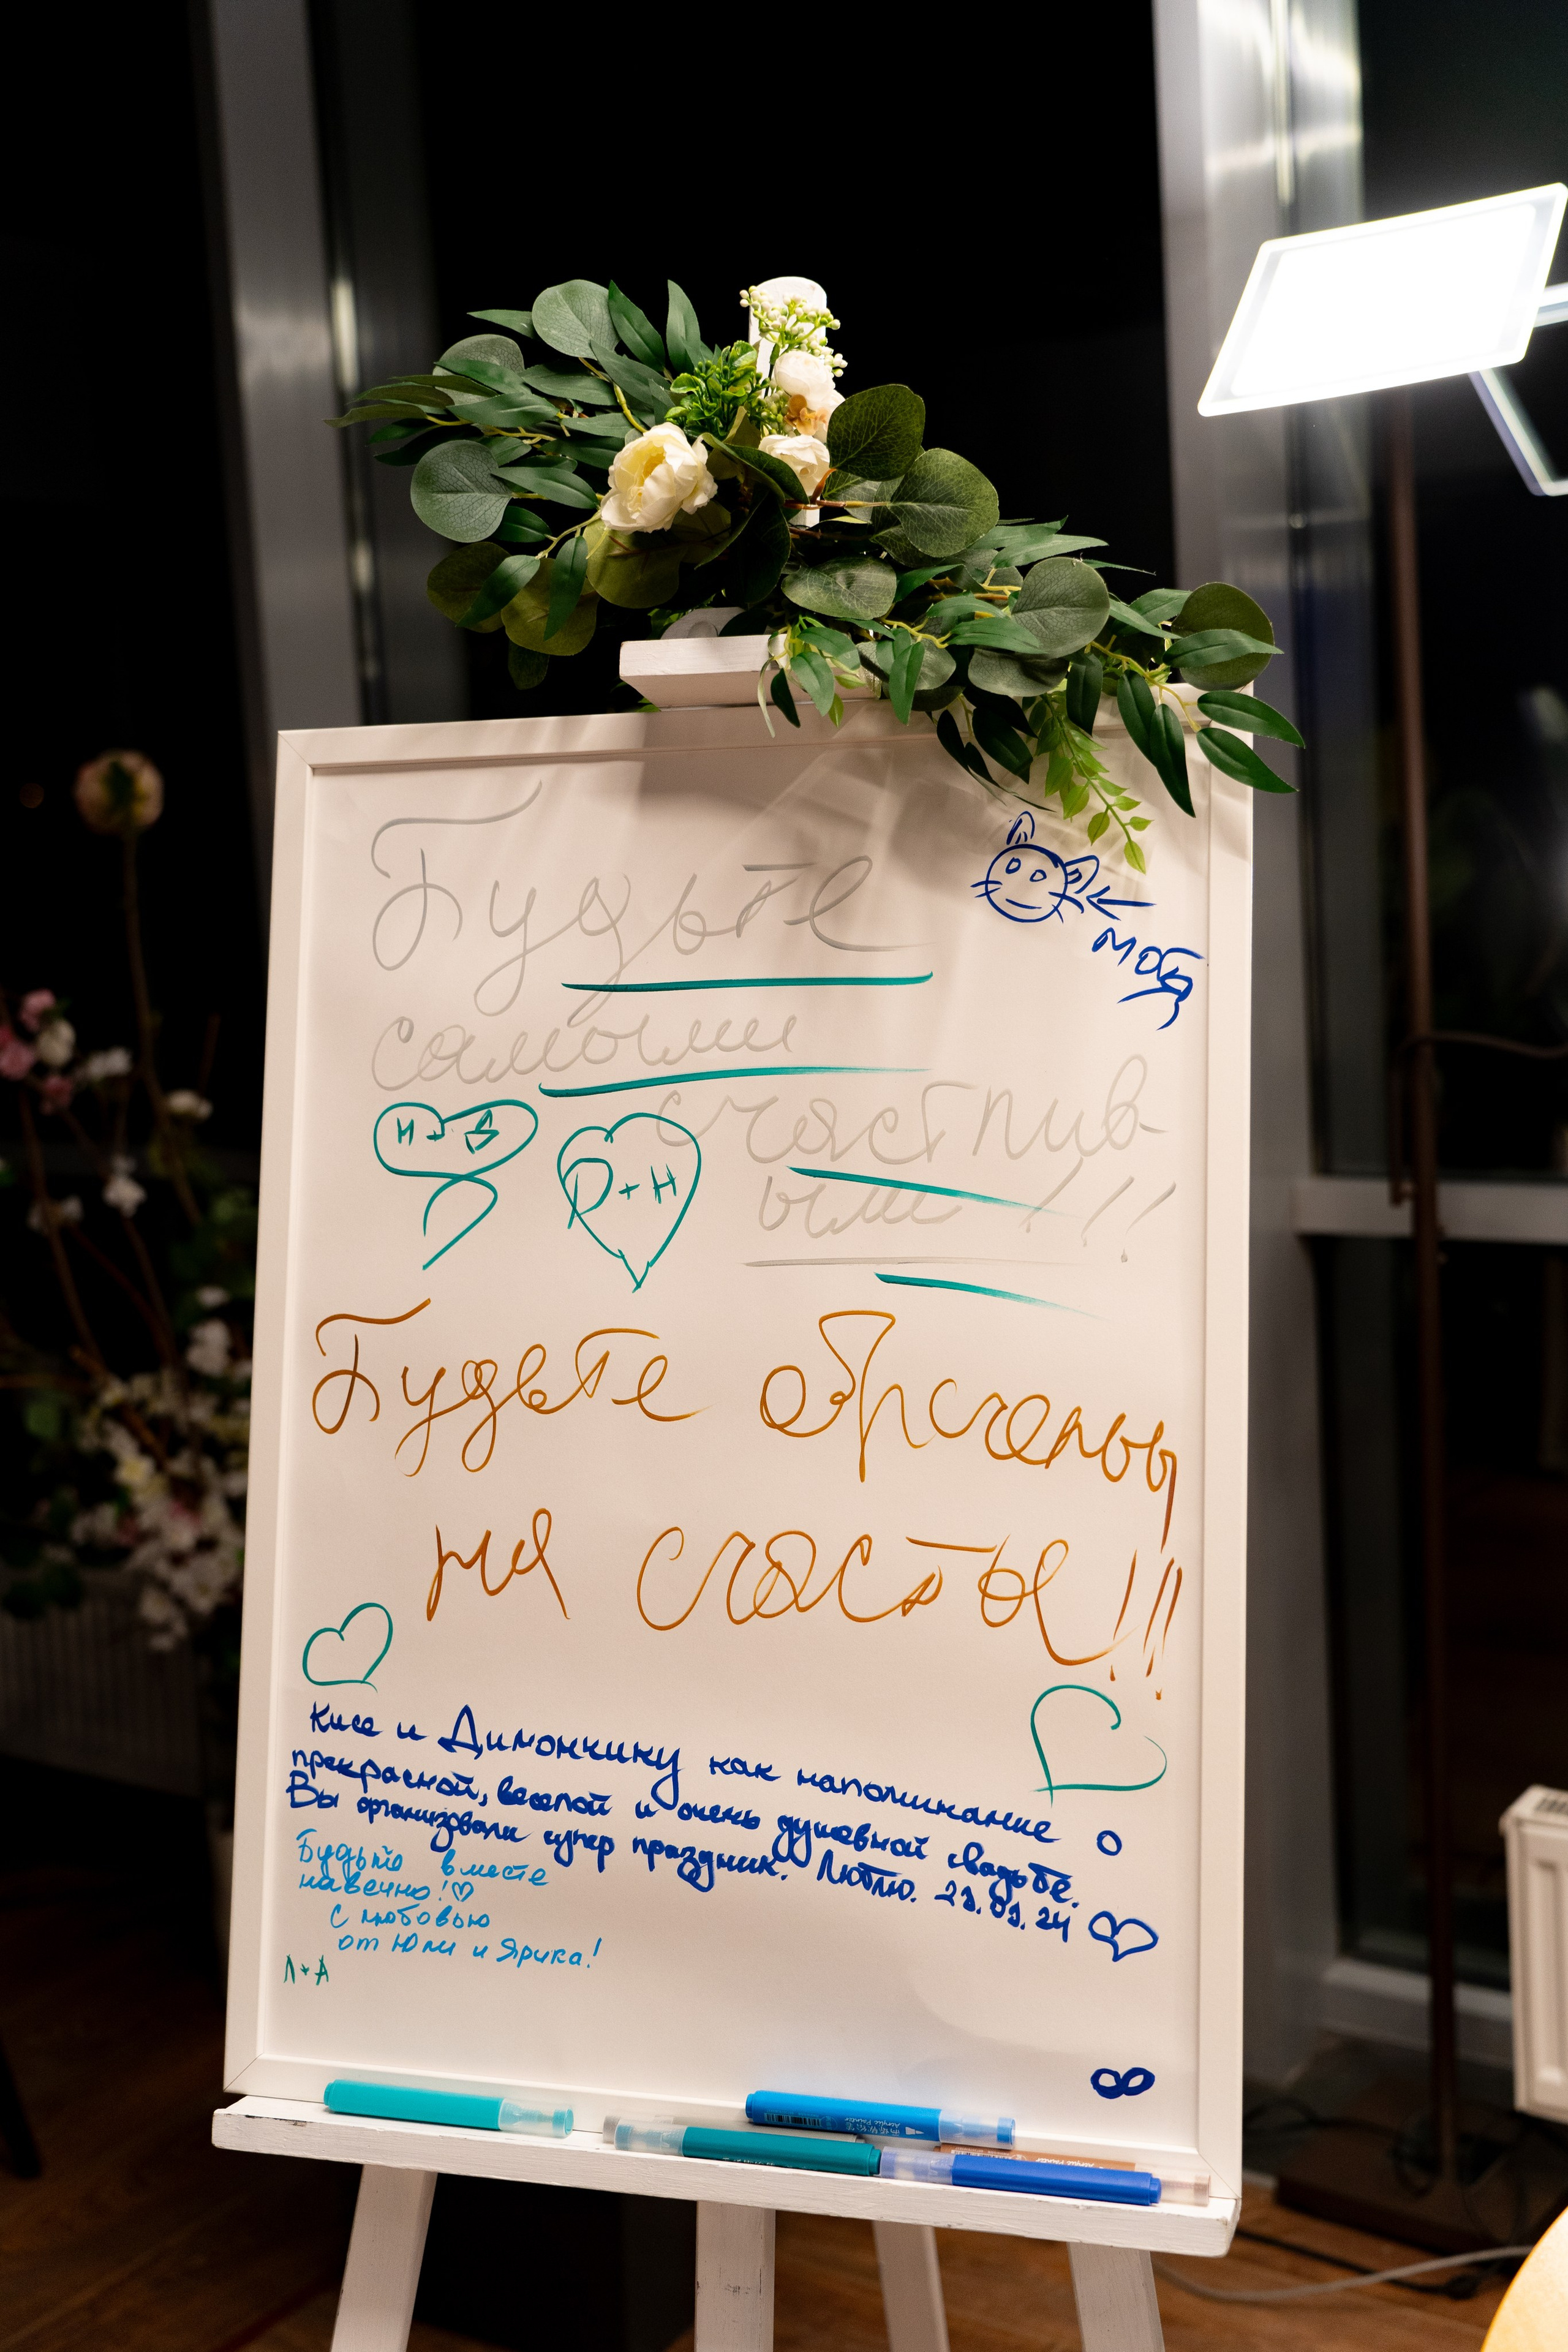 Будьте
мотя
самыми
счастлив
ыми!!!
Н + В
D + Н
Будьте обречены
на счастье!!!
Кисе и Димончику как напоминание о
прекрасной, веселой и очень душевной свадьбе.
Вы организовали супер праздник. Люблю.
Будьте вместе
навечно!♡
с любовью
от Юли и Ярика!
Л+А
Acrylic Painter